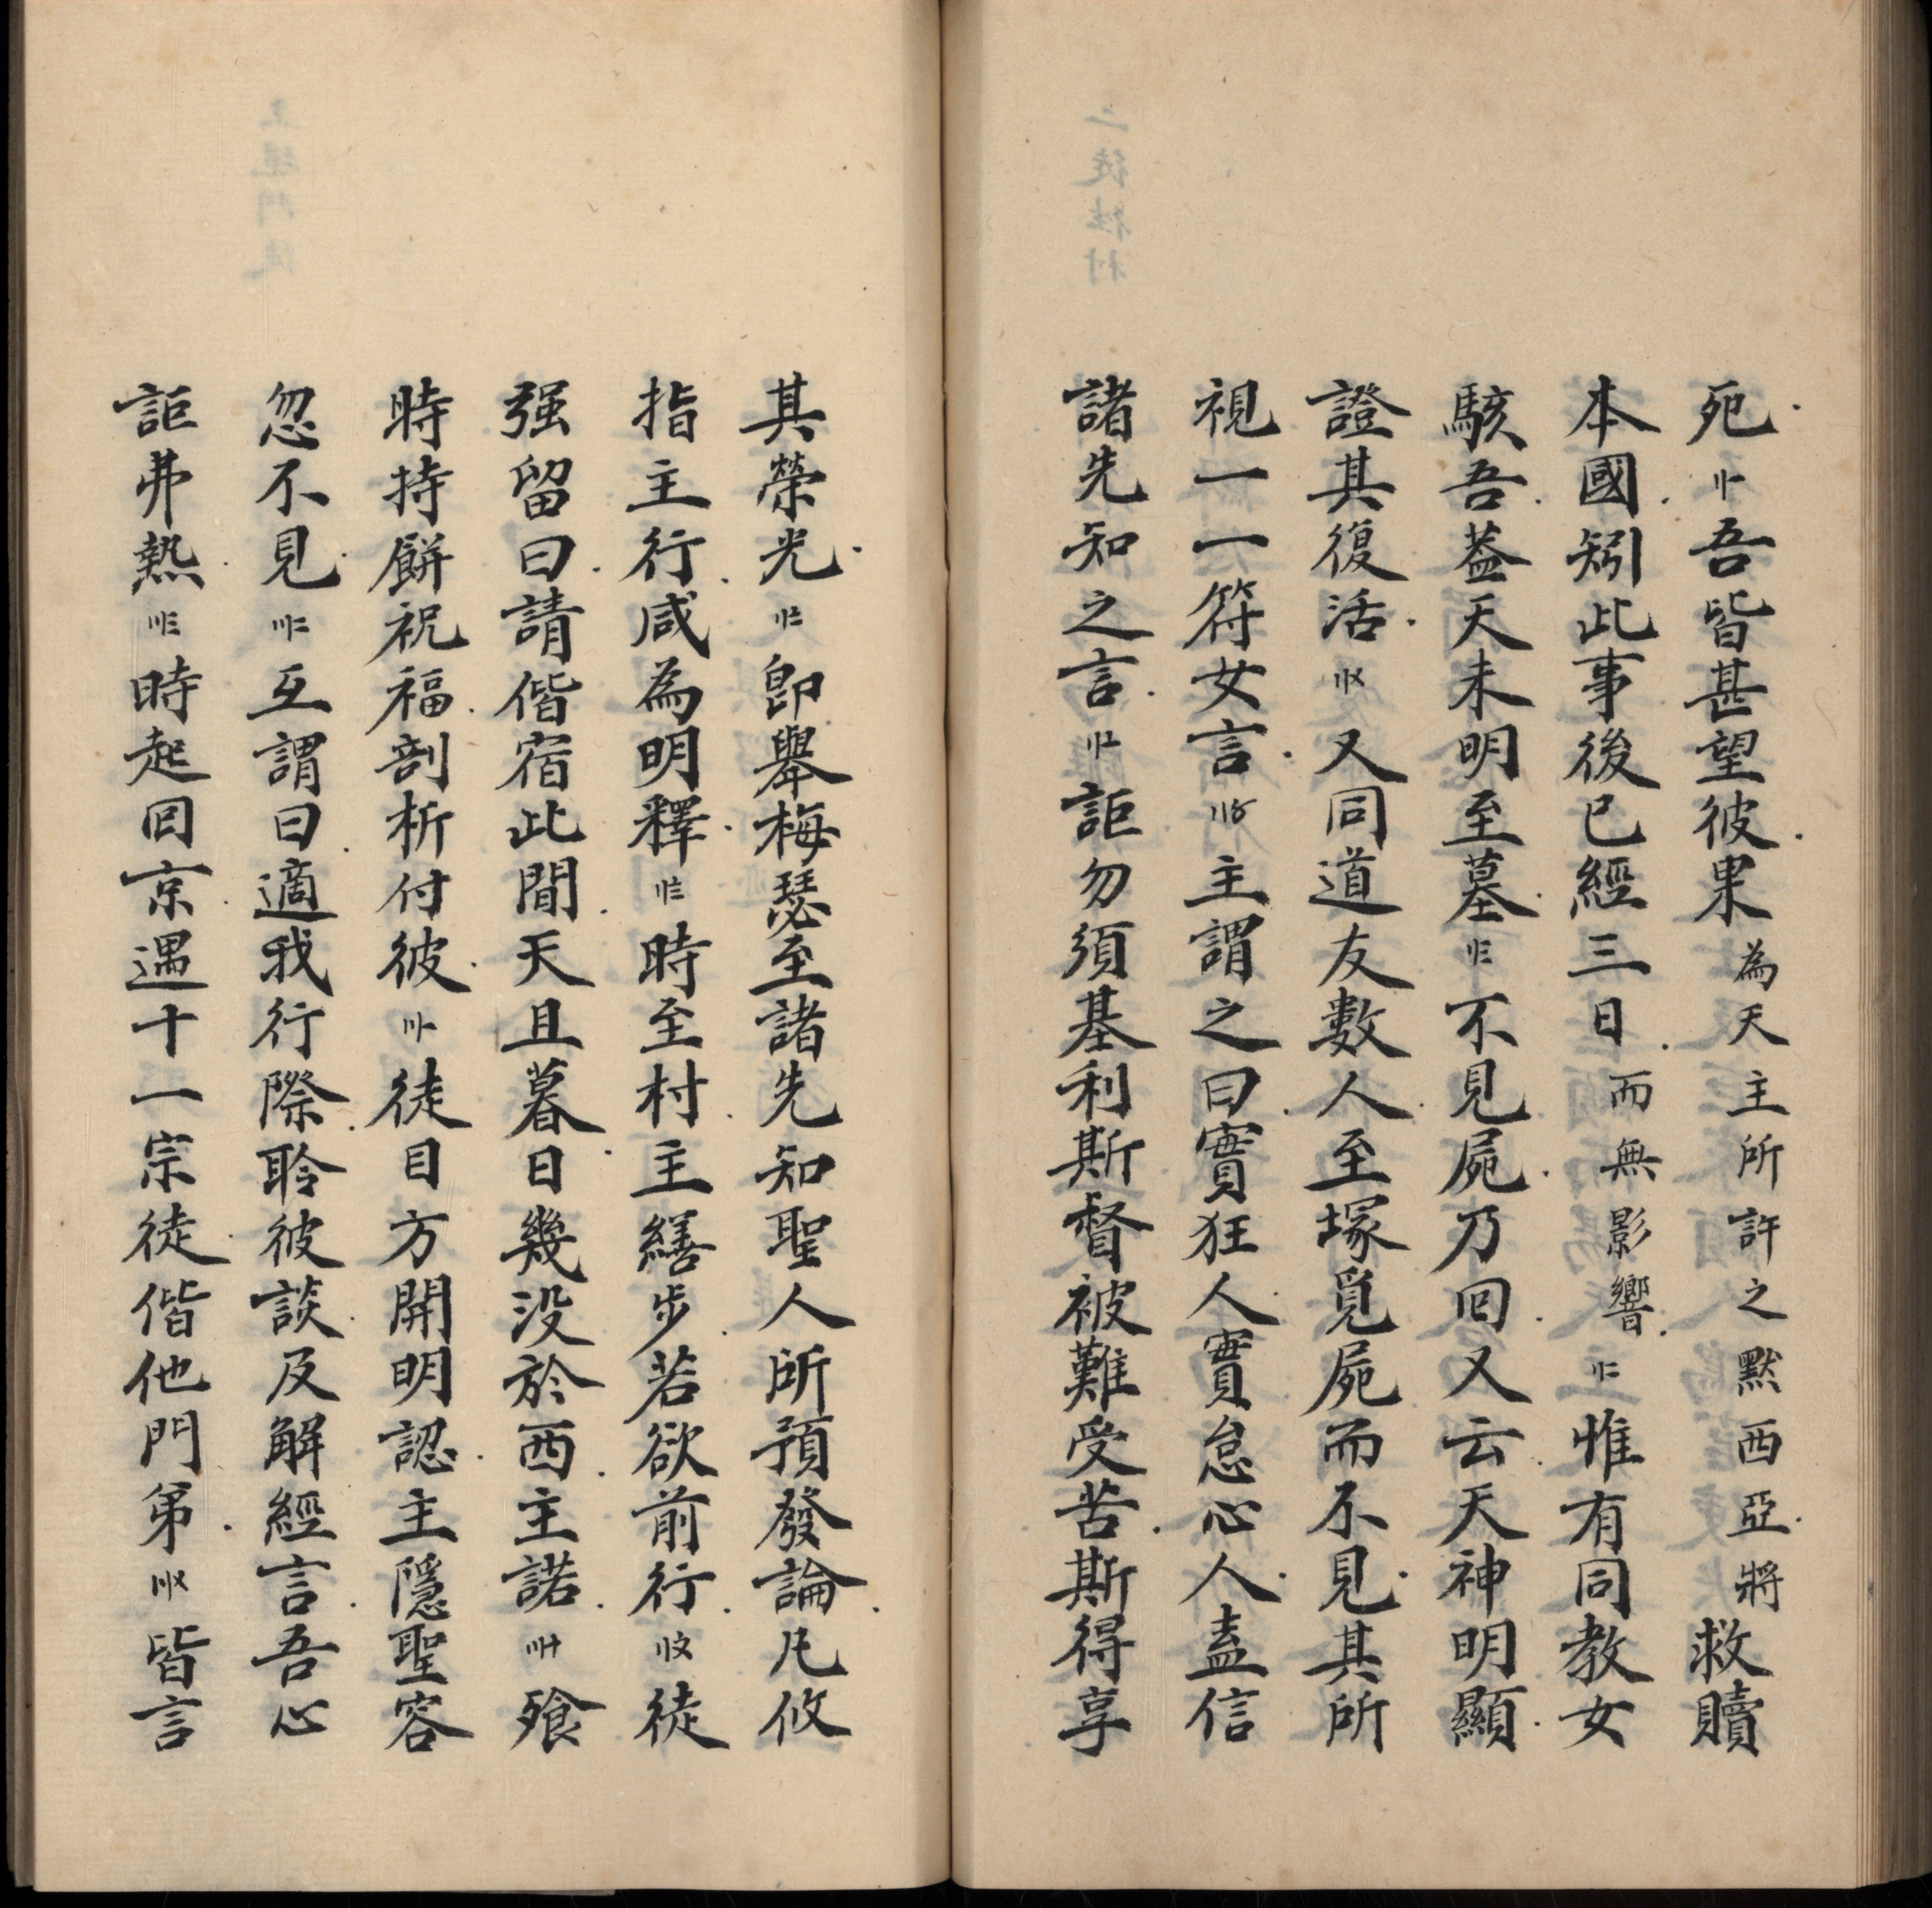 死〢一吾皆甚望彼果為天主所許之默西亞將救贖
本國矧此事後已經三日而無影響〢二惟有同教女
駭吾葢天未明至墓〢三不見屍乃囘又云天神明顯
證其復活〢〤又同道友數人至塚覓屍而不見其所
視一一符女言〢〥主謂之曰實狂人實怠心人盍信
諸先知之言〢〦詎勿須基利斯督被難受苦斯得享
其榮光〢〧即舉梅瑟至諸先知聖人所預發論凡攸
指主行咸為明釋〢〨時至村主繕步若欲前行〢〩徒
强留曰請偕宿此間天且暮日幾没於西主諾〣十飱
時持餅祝福剖析付彼〣一徒目方開明認主隱聖容
忽不見〣二互謂曰適我行際聆彼談及解經言吾心
詎弗熱〣三時起囘京遇十一宗徒偕他門弟〣〤皆言